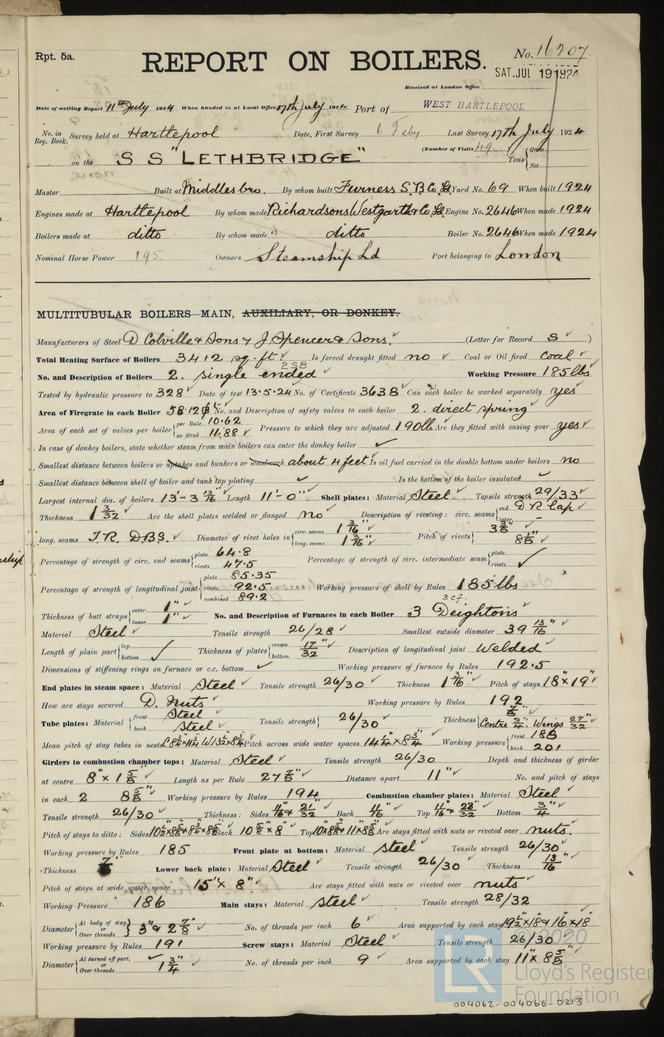 Rpt. 5a.
REPORT ON BOILERS.
No. 16207
Received at London Office
SAT. JUL 19 1924
Date of writing Report 11th July 1924 When handed in at Local Office 17th July 1924 Port of WEST HARTLEPOOL
No. in Reg. Book. Survey held at Hartlepool Date, First Survey 6 Feby Last Survey 17th July 1924
(Number of Visits 49) Tons { Gross Net
on the S S "LETHBRIDGE"
Master Built at Middlesbro. By whom built Furness S.B. Co Ld Yard No. 69 When built 1924
Engines made at Hartlepool By whom made Richardsons Westgarth & Co Ld Engine No. 2646 When made 1924
Boilers made at ditto By whom made ditto Boiler No. 2646 When made 1924
Nominal Horse Power 195 Owners Steamship Ld Port belonging to London
MULTITUBULAR BOILERS—MAIN, AUXILIARY, OR DONKEY.
Manufacturers of Steel D Colville & Sons & J Spencer & Sons. (Letter for Record S)
Total Heating Surface of Boilers 3412 sq. ft Is forced draught fitted no Coal or Oil fired coal
No. and Description of Boilers 2. single ended 2SB Working Pressure 185 lbs
Tested by hydraulic pressure to 328 Date of test 13.5.24 No. of Certificate 3638 Can each boiler be worked separately yes
Area of Firegrate in each Boiler 58.12 No. and Description of safety valves to each boiler 2. direct spring
Area of each set of valves per boiler { per Rule 10.62 as fitted 11.88 Pressure to which they are adjusted 190 lb Are they fitted with easing gear yes
In case of donkey boilers, state whether steam from main boilers can enter the donkey boiler ✓
Smallest distance between boilers or uptakes and bunkers or woodwork about 4 feet Is oil fuel carried in the double bottom under boilers no
Smallest distance between shell of boiler and tank top plating Is the bottom of the boiler insulated
Largest internal dia. of boilers 13'-3 7/16" Length 11'-0" Shell plates: Material Steel Tensile strength 29/33
Thickness 1 3/32 Are the shell plates welded or flanged no Description of riveting: circ. seams { end DR Lap inter
long. seams T.R. DBS. Diameter of rivet holes in { circ. seams 1 3/16" long. seams 1 3/16" Pitch of rivets { 3 5/8 8 1/8"
Percentage of strength of circ. end seams { plate 64.8 rivets 47.5 Percentage of strength of circ. intermediate seam { plate rivets ✓
Percentage of strength of longitudinal joint { plate 85.35 rivets 92.5 combined 89.2 Working pressure of shell by Rules 185 lbs
Thickness of butt straps { outer 1" inner 1" No. and Description of Furnaces in each Boiler 3 Deightons 3 cf.
Material Steel Tensile strength 26/28 Smallest outside diameter 39 13/16"
Length of plain part { top bottom ✓ Thickness of plates { crown bottom 17/32" Description of longitudinal joint Welded
Dimensions of stiffening rings on furnace or c.c. bottom ✓ Working pressure of furnace by Rules 192.5
End plates in steam space: Material Steel Tensile strength 26/30 Thickness 1 3/16" Pitch of stays 18" x 19"
How are stays secured D. nuts Working pressure by Rules 192
Tube plates: Material { front Steel back Steel Tensile strength { 26/30 Thickness { 7/8" Centre 3/4" Wings 27/32
Mean pitch of stay tubes in nests Pitch across wide water spaces 14 1/4" x 8 3/4" Working pressure { front 188 back 201
Girders to combustion chamber tops: Material Steel Tensile strength 26/30 Depth and thickness of girder
at centre 8" x 1 5/8 Length as per Rule 27 7/8" Distance apart 11" No. and pitch of stays
in each 2 8 5/8" Working pressure by Rules 194 Combustion chamber plates: Material Steel
Tensile strength 26/30 Thickness: Sides 11/16" & 21/32 Back 11/16 Top 11/16" & 23/32 Bottom 3/4"
Pitch of stays to ditto: Sides Back 10 5/8" x 8" Top Are stays fitted with nuts or riveted over nuts.
Working pressure by Rules 185 Front plate at bottom: Material steel Tensile strength 26/30
Thickness 7/8" Lower back plate: Material Steel Tensile strength 26/30 Thickness 13/16"
Pitch of stays at wide water space 15" x 8" Are stays fitted with nuts or riveted over nuts
Working Pressure 186 Main stays: Material steel Tensile strength 28/32
Diameter { At body of stay or Over threads } 3" & 2 7/8" No. of threads per inch 6 Area supported by each stay 19 1/2" x 18 & 16" x 18
Working pressure by Rules 191 Screw stays: Material Steel Tensile strength 26/30
Diameter { At turned off part, or Over threads 1 3/4" No. of threads per inch 9 Area supported by each stay 11" x 8 5/8"
© 2020
LR
Lloyd's Register
Foundation
004062-004066-0213